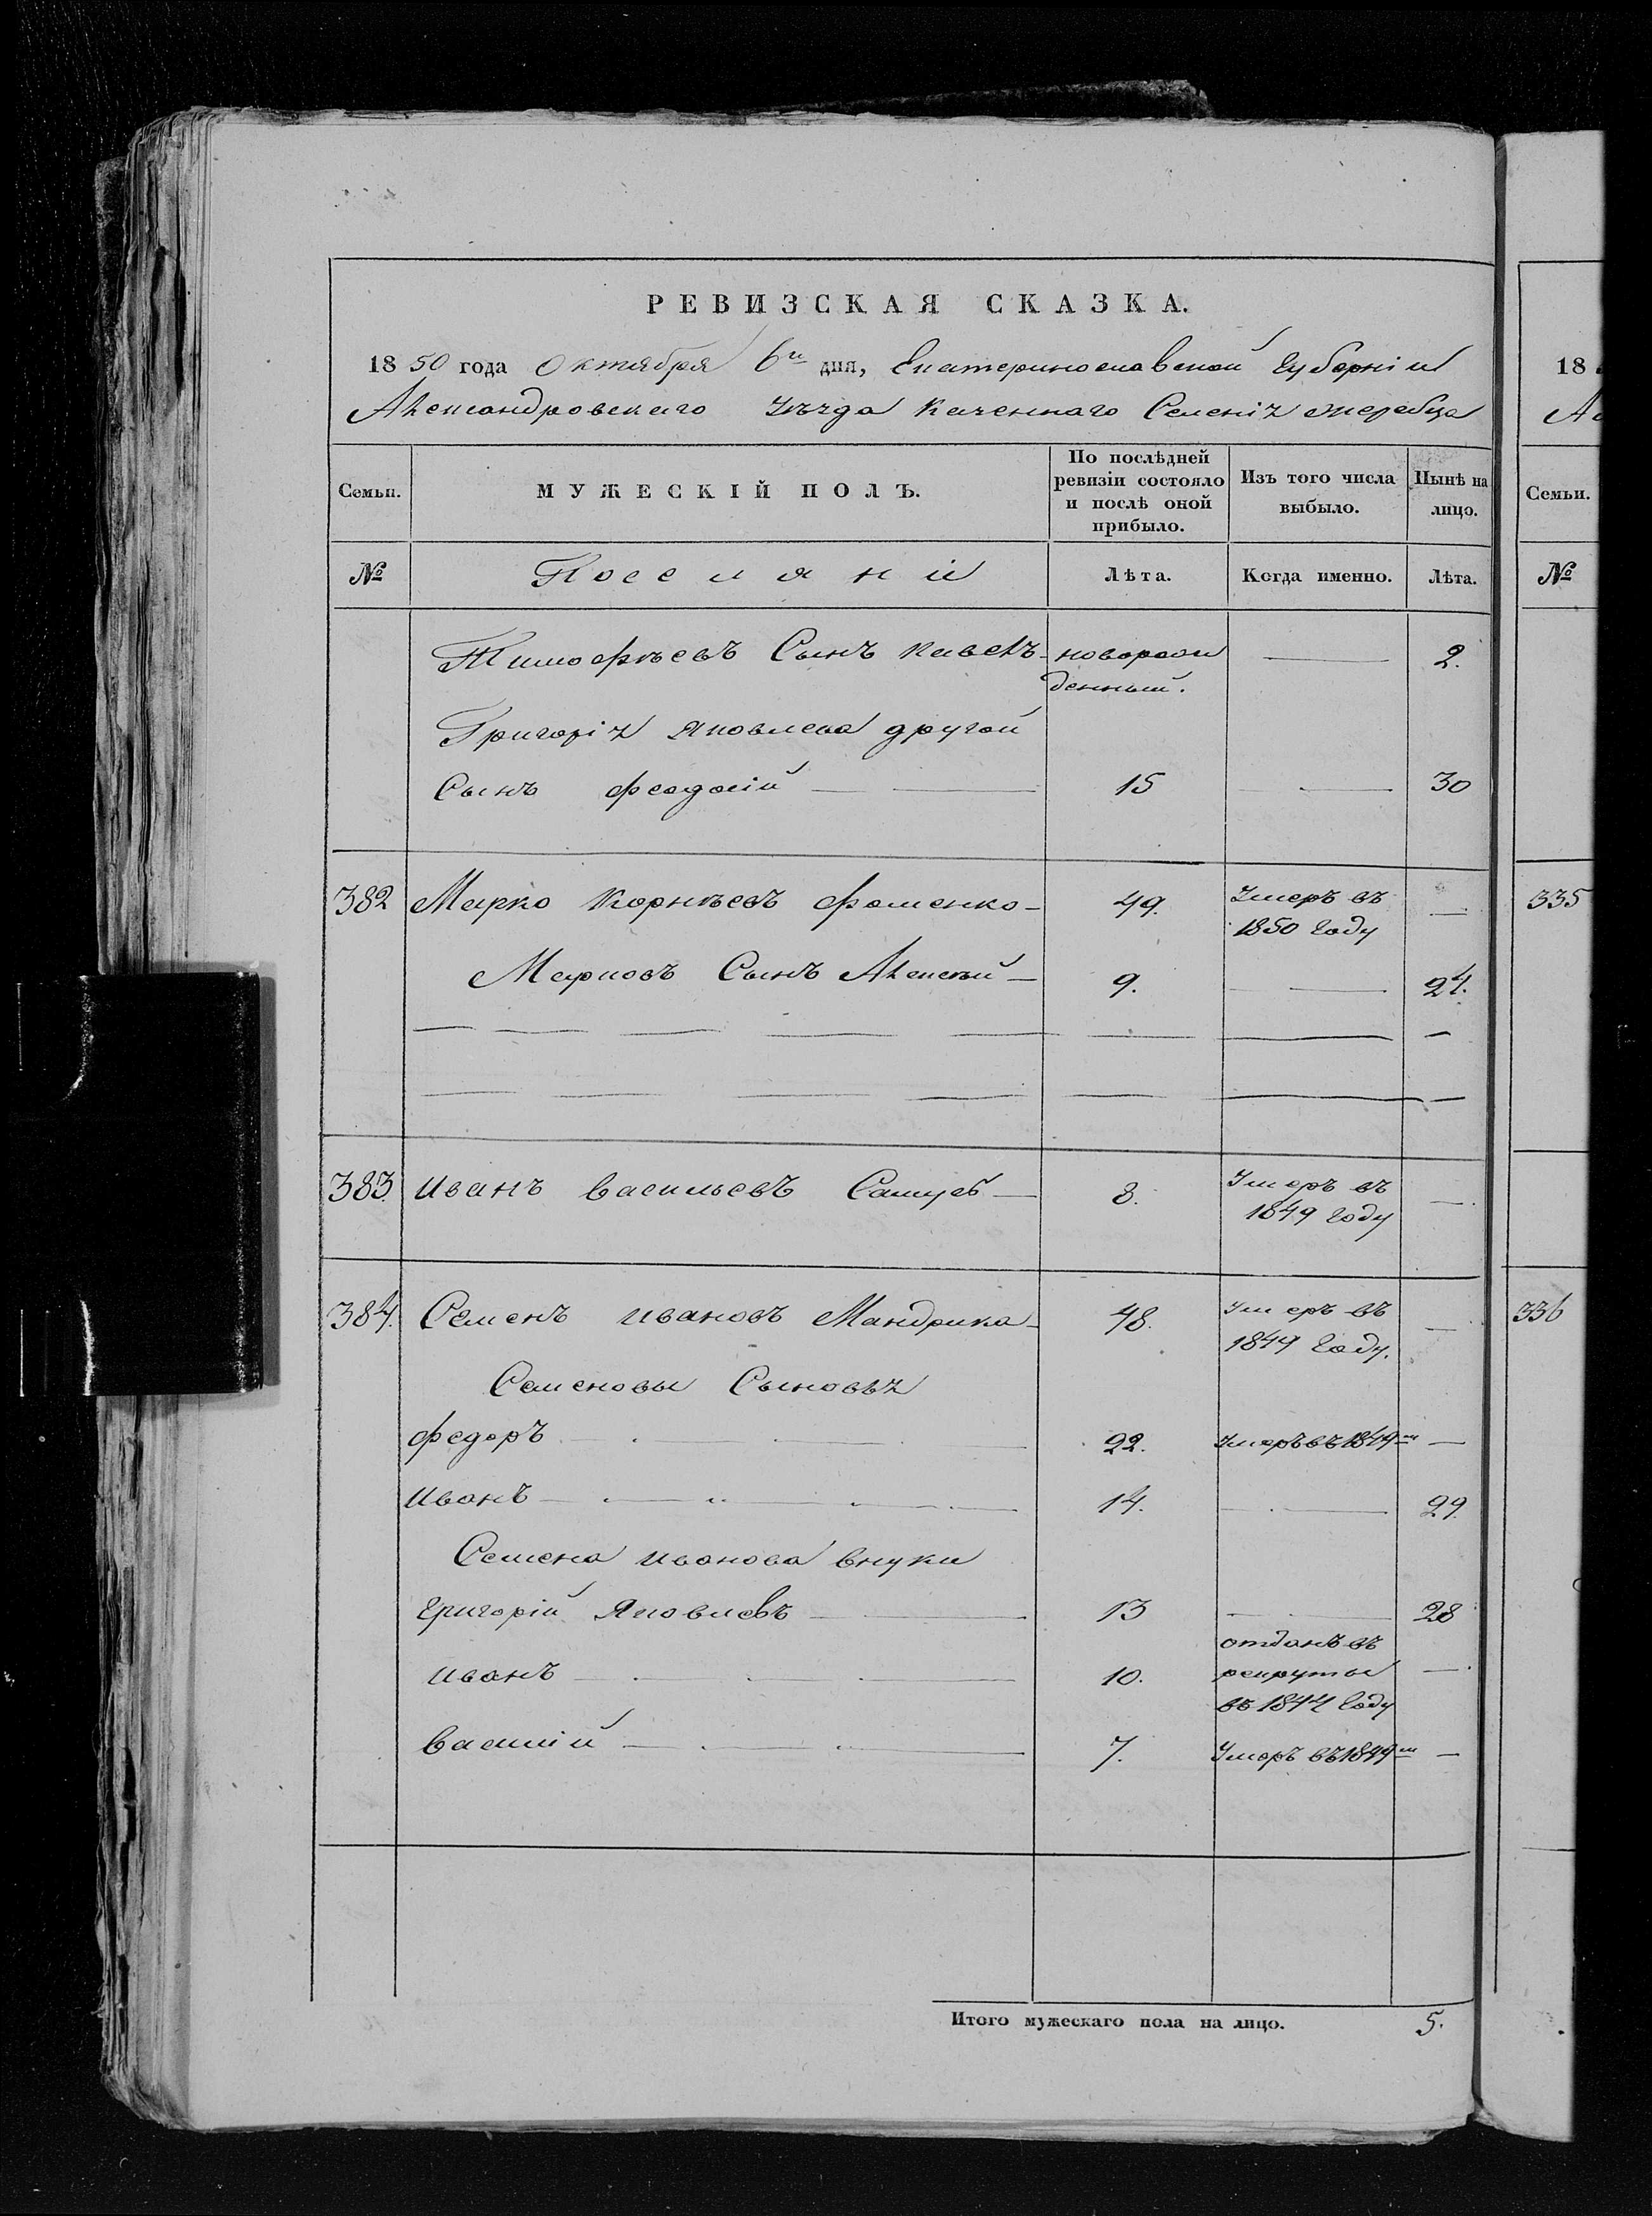 РЕВИЗСКАЯ СКАЗКА.
1850 года Октября 6го дня, Екатеринославской Губерніи
Александровскаго Уѣзда Казеннаго Селенія Жеребца
Семьи.
МУЖЕСКІЙ ПОЛЪ.
По послѣдней ревизіи состояло и послѣ оной прибыло.
Изъ того числа выбыло.
Нынѣ на лицо.
№
Поселянѣ
Лѣта.
Когда именно.
Лѣта.
Тимофѣевъ Сынъ Павелъ новорож — 2.
денный.
Григорія Яковлева другой
Сынъ Феодосій — 15 — 30
382 Марко Корнѣевъ Фоменко — 49. Умеръ въ —
1850 Году
Марковъ Сынъ Алексѣй — 9. — 24.
383. Иванъ Васильевъ — 8. Умеръ въ —
1849 Году
384. Семенъ Ивановъ Мандрика — 48. Умеръ въ —
1849 Году.
Семеновы Сыновья
Федоръ — 22. Умеръ въ 1849м —
Иванъ — 14. — 29.
Семена Иванова внуки
Григорій Яковлевъ — 13 — 28
отданъ въ
Иванъ — 10. рекруты —
въ 1844 Году
Василій — 7. Умеръ въ 1849м —
Итого мужескаго пола на лицо. 5.
18
Семьи.
№
335
336